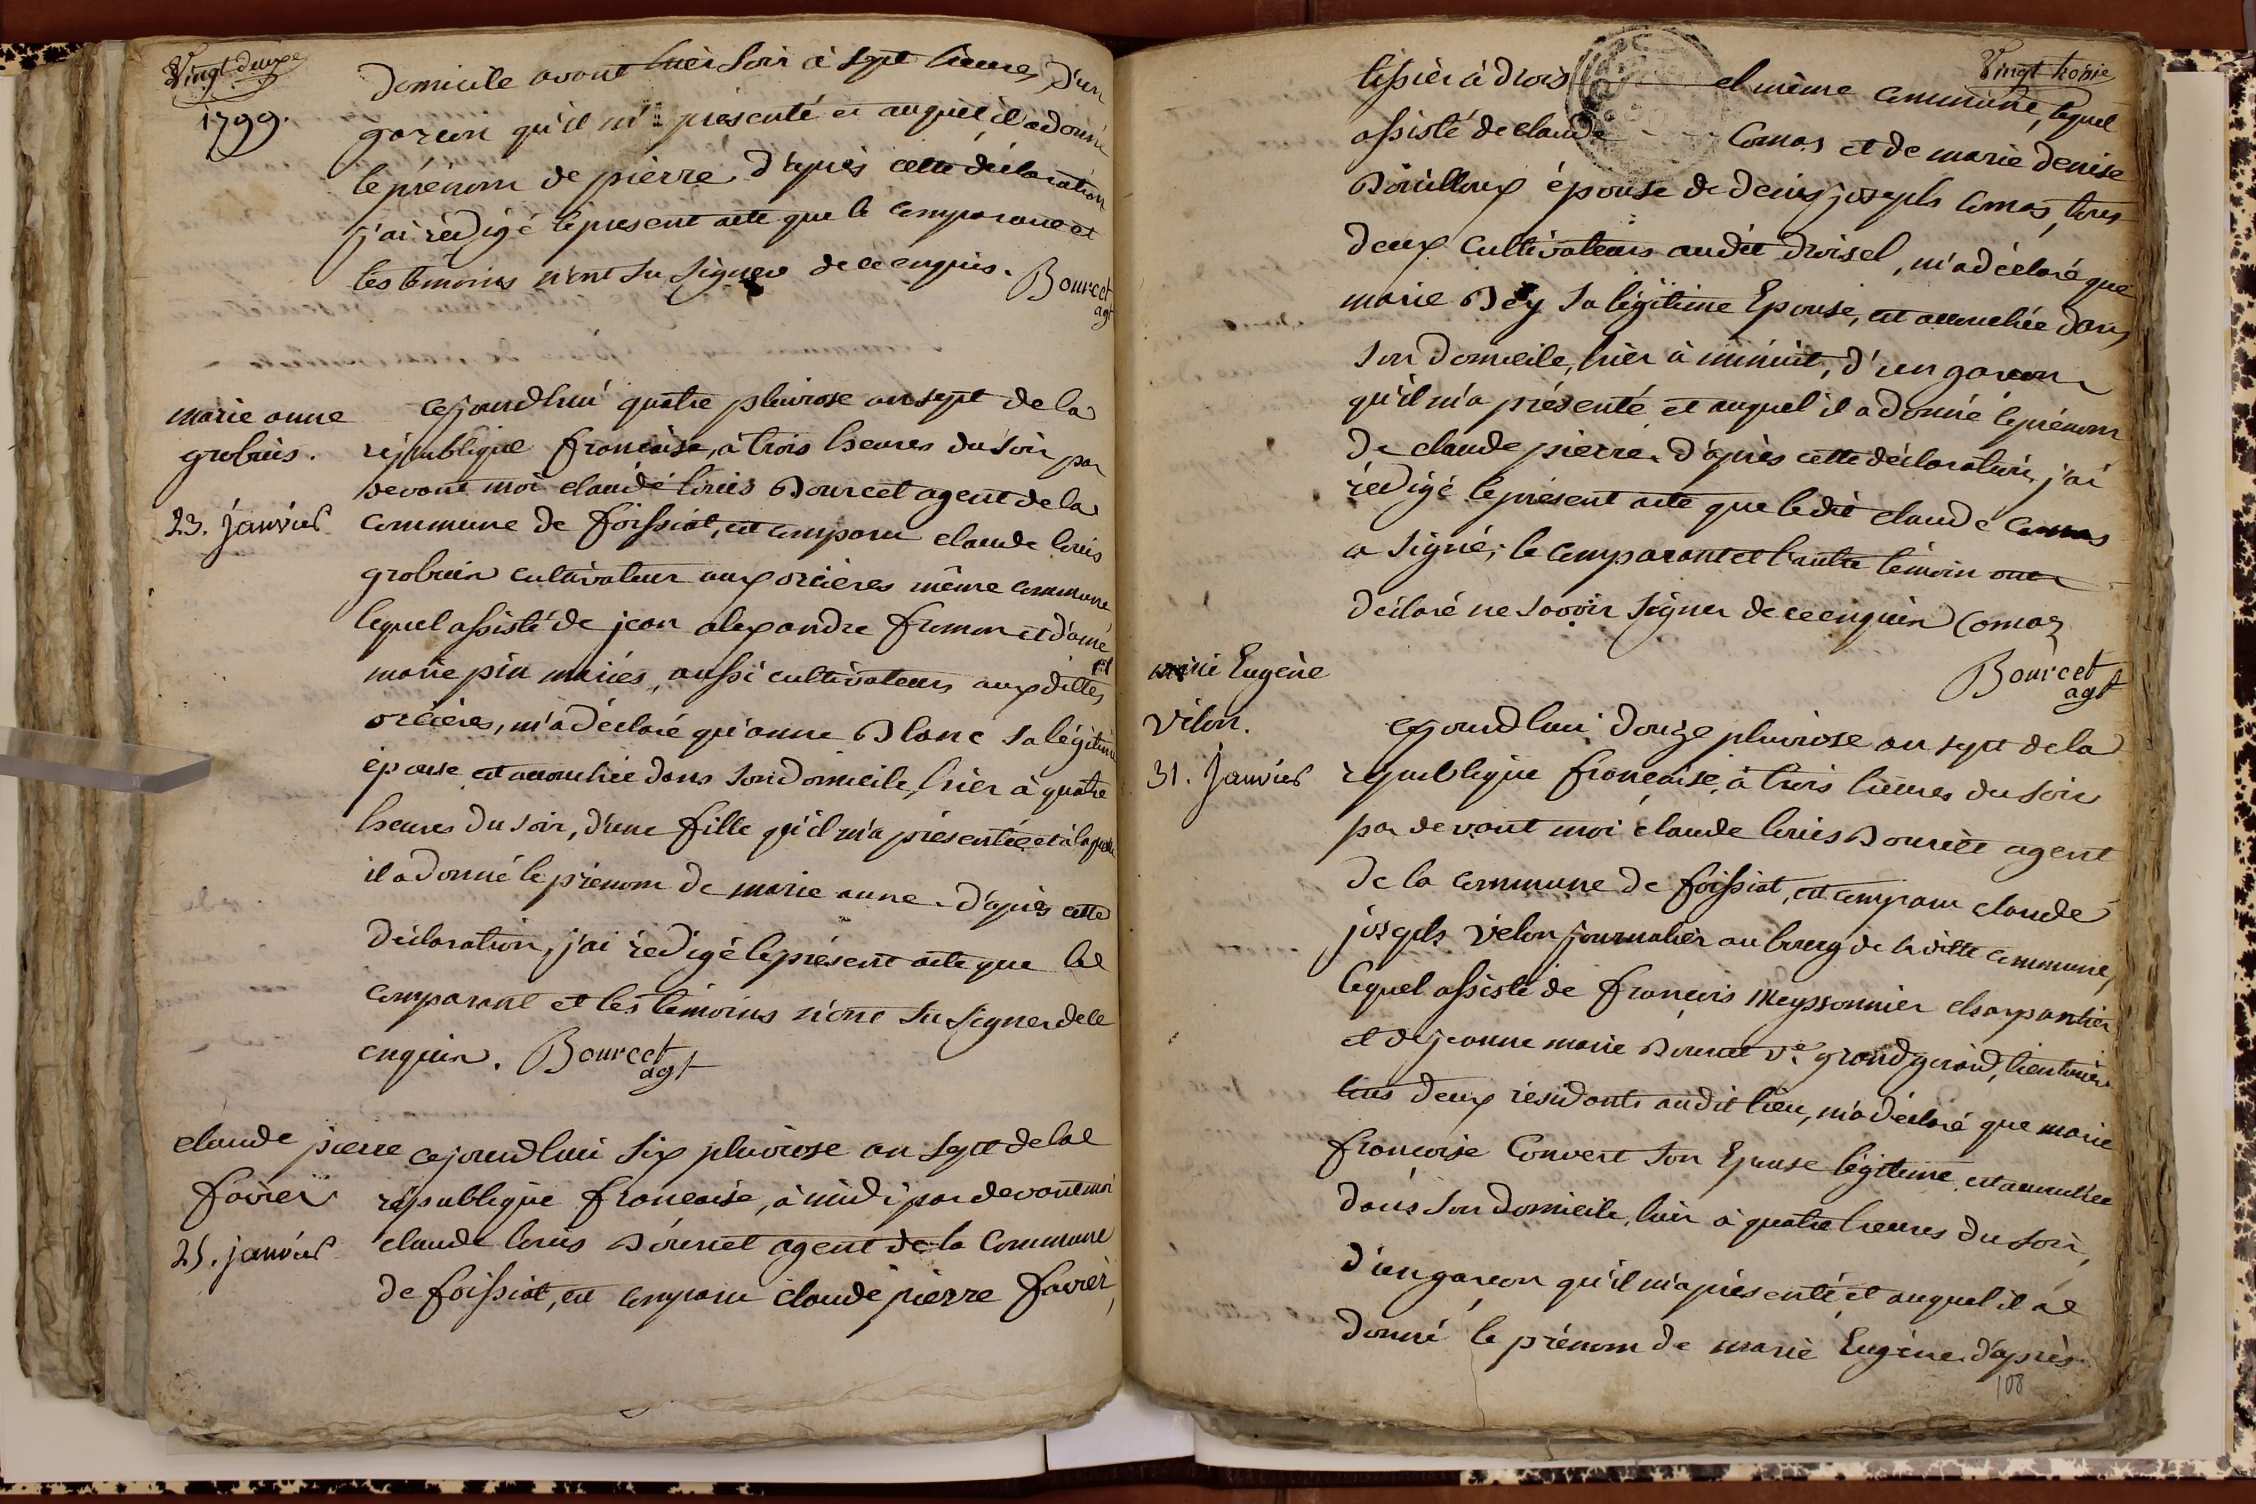 Vingt deuxe
1799.
domicile avant hier soir à sept heures, d'un
garcon qu'il m'a présenté et auquel il a donné
le prénom de pierre. d'après cette déclaration
j'ai rédigé le present acte que le comparant et
les témoins n'ont su signer de ce enquis. Bourcet
agt
marie anne
grobuis.
23. janvier
cejourdhui quatre pluviose an sept de la
république francaise, à trois heures du soir par
devant moi claude louis Bourcet agent de la
commune de foissiat, est comparu claude louis
grobuis cultivateur aux orcières même commune
lequel assisté de jean alexandre fromon et d'anne
marie piu mariés, aussi cultivateurs auxdittes
orcières, m'a déclaré qu'anne Blanc sa légitime
épouse est accouchée dans son domicile, hier à quatre
heures du soir, d'une fille qu'il m'a présentée et à laquelle
il a donné le prénom de marie anne. d'après cette
déclaration, j'ai rédigé le présent acte que le
comparant et les témoins n'ont su signer de ce
enquis. Bourcet
agt
claude pierre
favier
25. janvier
cejourdhui six pluviose an sept de la
république francaise, à midi par devant moi
claude louis Bourcet agent de la Commune
de foissiat, est comparu claude pierre favier,
Vingt troisie
tissier à drois el même commune, lequel
assisté de claude Comas et de marie denise
Bouilloux épouse de denis joseph comas, tous
deux cultivateurs audit droisel, m'a déclaré que
marie Bey sa légitime Epouse, est accouchée dans
son domicile, hier à minuit, d'un garcon
qu'il m'a présenté et auquel il a donné le prénom
de claude pierre. d'après cette déclaration, j'ai
rédigé le présent acte que ledit claude comas
a signé; le comparant et l'autre témoin ont
déclaré ne savoir signer de ce enquis Comas
Bourcet
agt
marie Eugène
vélon.
31. janvier
cejourdhui douze pluviose an sept de la
republique francaise, à trois heures du soir
par devant moi claude louis Bourcet agent
de la commune de foissiat, est comparu claude
joseph vélon journalier au bourg de laditte commune,
lequel assisté de francois Meyssonnier charpantier
et de jeanne marie Bourcet ve. grandgirard, rentière
tous deux résidants audit lieu, m'a déclaré que marie
francoise Convert son Epouse légitime est accouchée
dans son domicile, hier à quatre heures du soir,
d'un garcon qu'il m'a présenté, et auquel il a
donné le prénom de marie Eugène. d'après
108